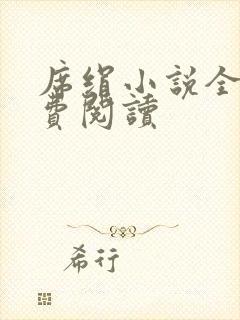 席絹小說全
費閱讀
希行